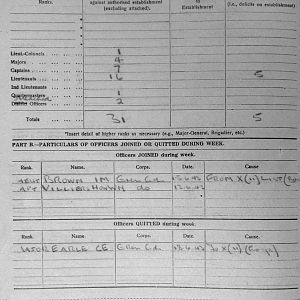 Ranks.
against authorised establishment
(excluding attached).
to
Establishment
(i.e., deficits on establishment)
Lieut-Colonels 1
Majors 4
Captains 7
Lieutenants 16 5
2nd Lieutenants
Quartermasters 1
District Officers 2
Totals 31 5
*Insert detail of higher ranks as necessary (e.g., Major-General, Brigadier, etc.)
PART B.—PARTICULARS OF OFFICERS JOINED OR QUITTED DURING WEEK.
Officers JOINED during week.
Rank. Name. Corps. Date. Cause
BROWN IM FROM X(ii) LIST
do
Officers QUITTED during week.
Rank. Name. Corps. Date. Cause
MAJOR EARLE CE X(ii)
Rank. Name. Corps. Date. Cause